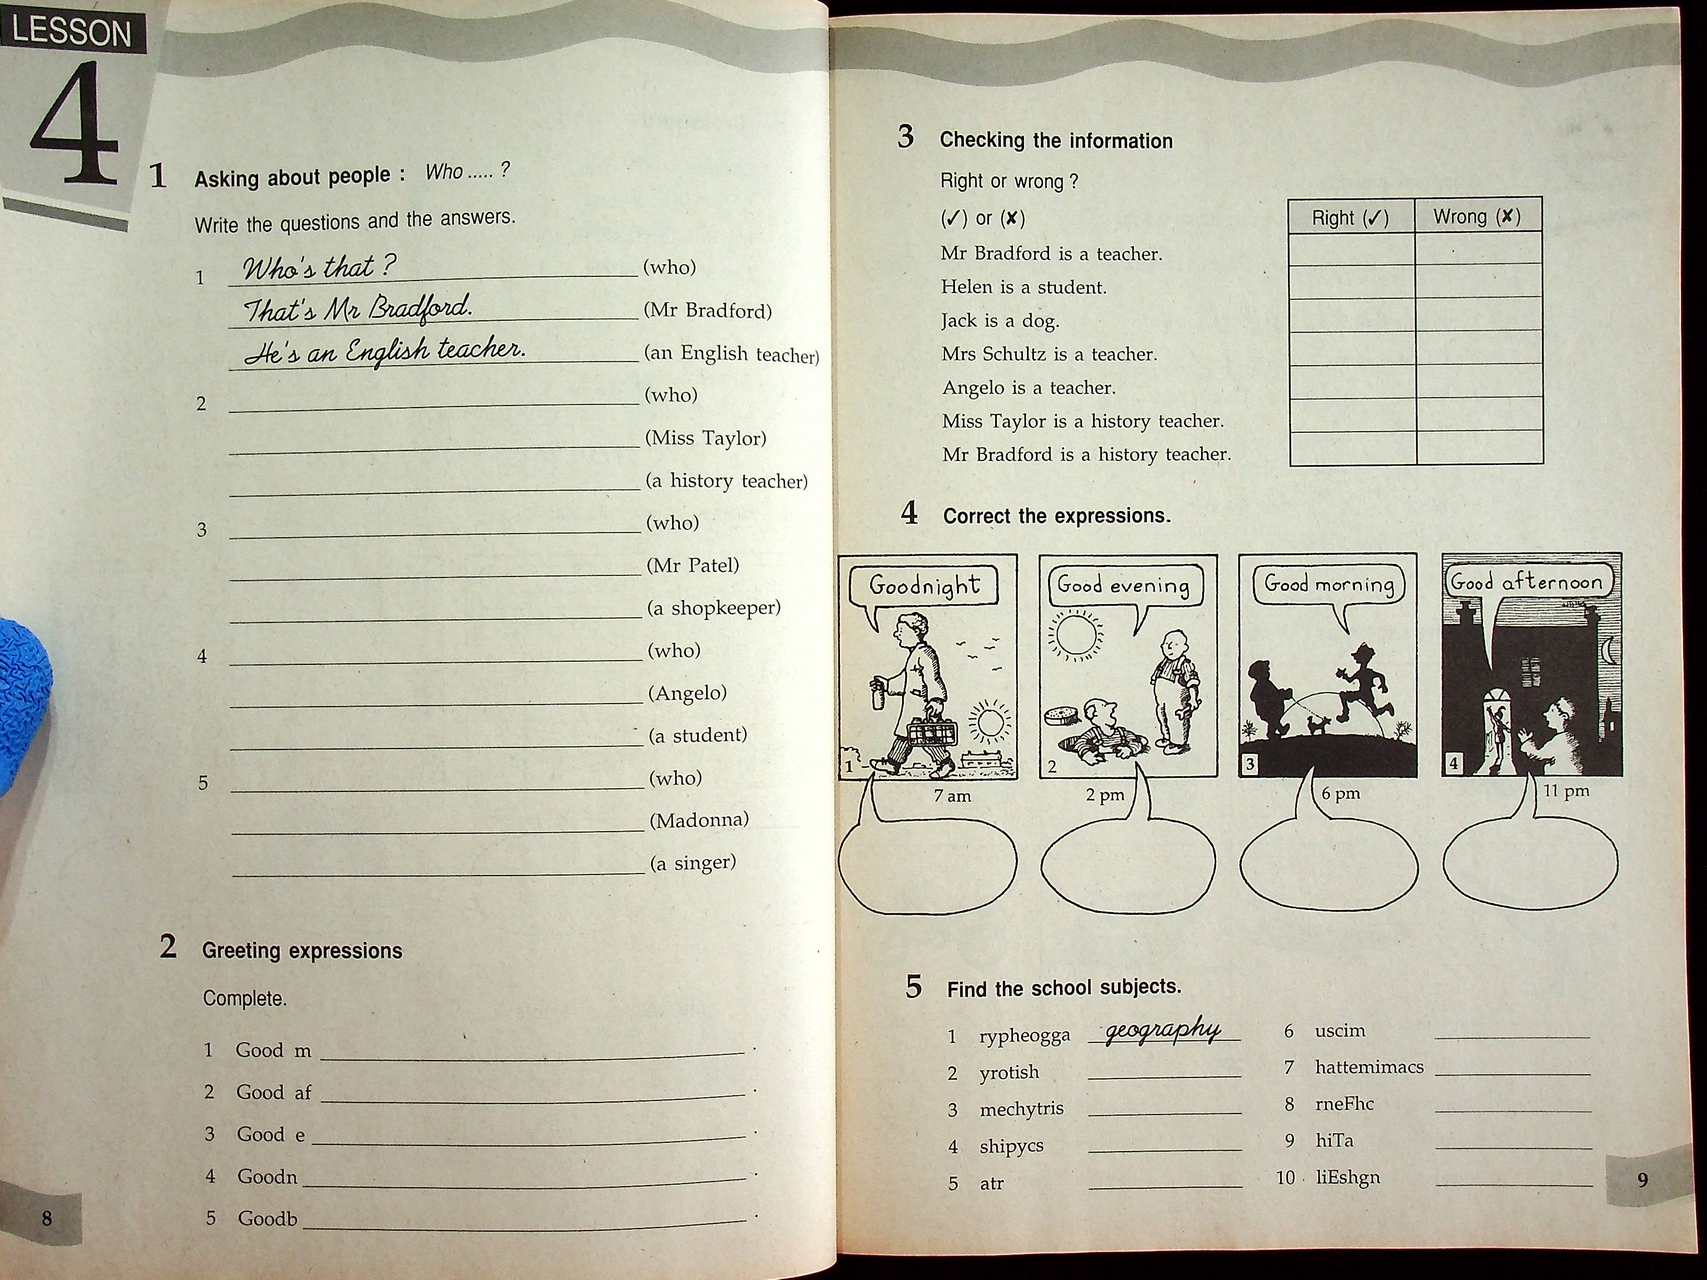 LESSON
4
1 Asking about people : Who ..... ?
Write the questions and the answers.
1 Who's that ? (who)
That's Mr Bradford. (Mr Bradford)
He's an English teacher. (an English teacher)
2 (who)
(Miss Taylor)
(a history teacher)
3 (who)
(Mr Patel)
(a shopkeeper)
4 (who)
(Angelo)
(a student)
5 (who)
(Madonna)
(a singer)
2 Greeting expressions
Complete.
1 Good m .
2 Good af .
3 Good e .
4 Goodn .
5 Goodb .
8
3 Checking the information
Right or wrong ?
(✓) or (✘)
Right (✓) Wrong (✘)
Mr Bradford is a teacher.
Helen is a student.
Jack is a dog.
Mrs Schultz is a teacher.
Angelo is a teacher.
Miss Taylor is a history teacher.
Mr Bradford is a history teacher.
4 Correct the expressions.
Goodnight
1
7 am
Good evening
2
2 pm
Good morning
3
6 pm
Good afternoon
4
11 pm
5 Find the school subjects.
1 rypheogga geography
2 yrotish
3 mechytris
4 shipycs
5 atr
6 uscim
7 hattemimacs
8 rneFhc
9 hiTa
10 liEshgn
9